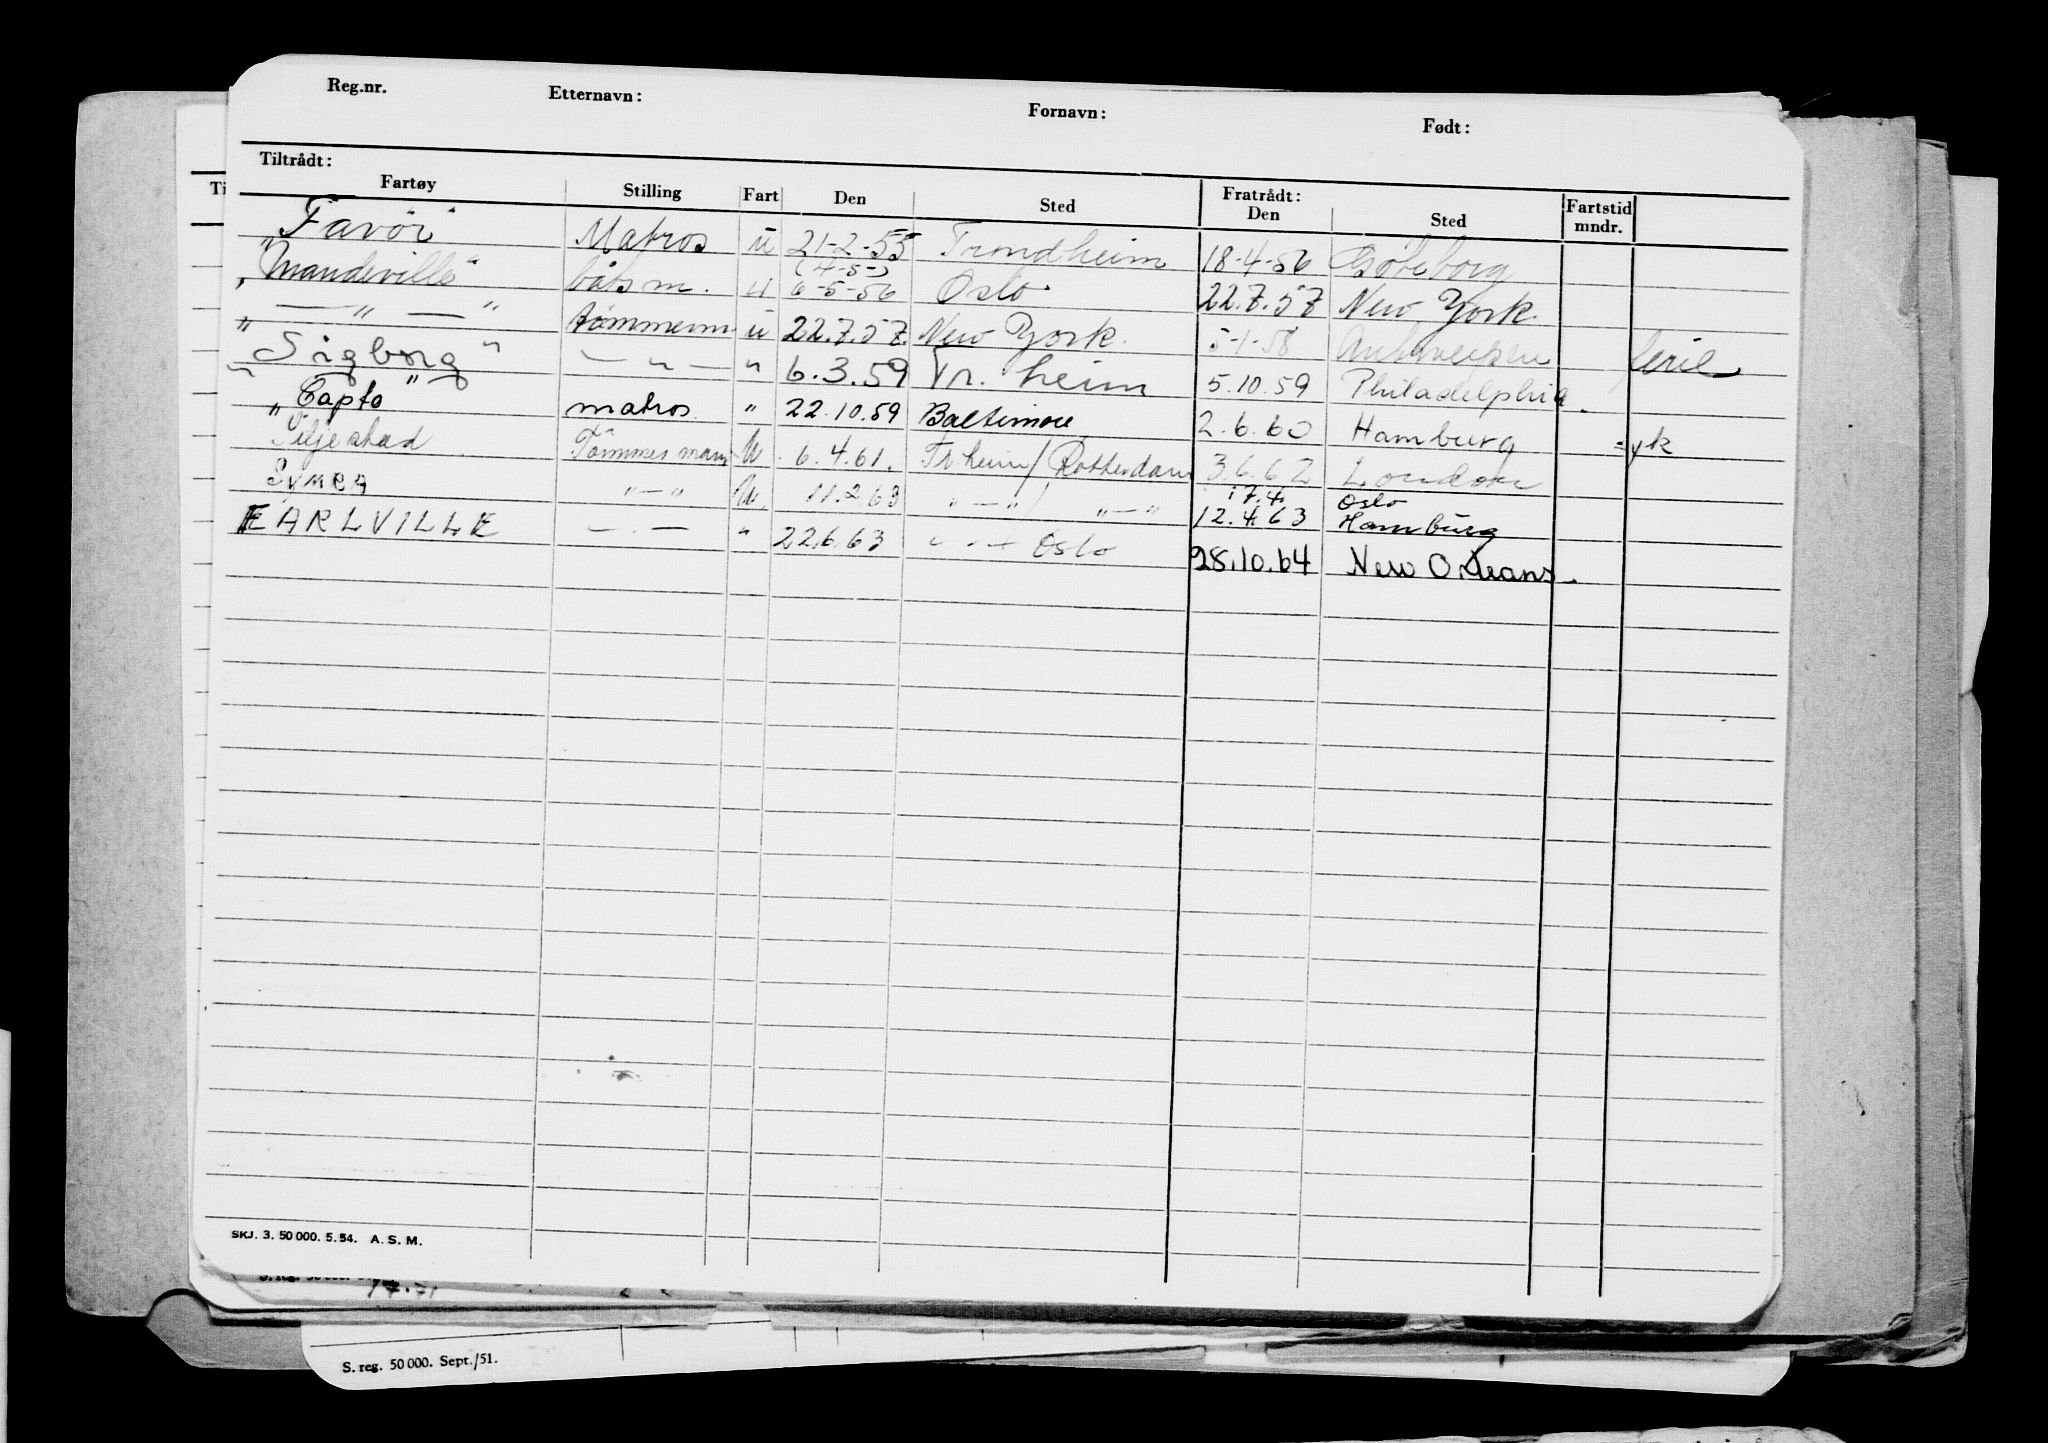 Reg.nr. Etternavn: Fornavn: Født:
Tiltrådt: Fratrådt:
Ti Fartøy Stilling Fart Den Sted Den Sted Fartstid mndr.
"Favör" Matros u 21-2-55 Trondheim 18-4-56 Göteborg
"Mandeville" båtsm. u (4-5-) 6-5-56 Oslo 22.7.57 New York.
— " — " tømmerm u 22.7.57. New York. 5-1-58 Antwerpen ferie
"Sigborg" — " — " 6.3.59 Tr.heim 5.10.59 Philadelphia.
"Capto" matros " 22.10.59 Baltimore 2.6.60 Hamburg syk
"Siljestad Tømmermann U 6.4.61. Tr.heim / Rotterdam 3.6.62 London
" — " U. 11.2.63 " — " / " — " 17.4. Oslo
12.4.63 Hamburg
EARLVILLE — " — " 22.6.63 Oslo 28.10.64 New Orleans.
SKJ. 3. 50 000. 5. 54. A. S. M.
S. reg. 50 000. Sept./51.